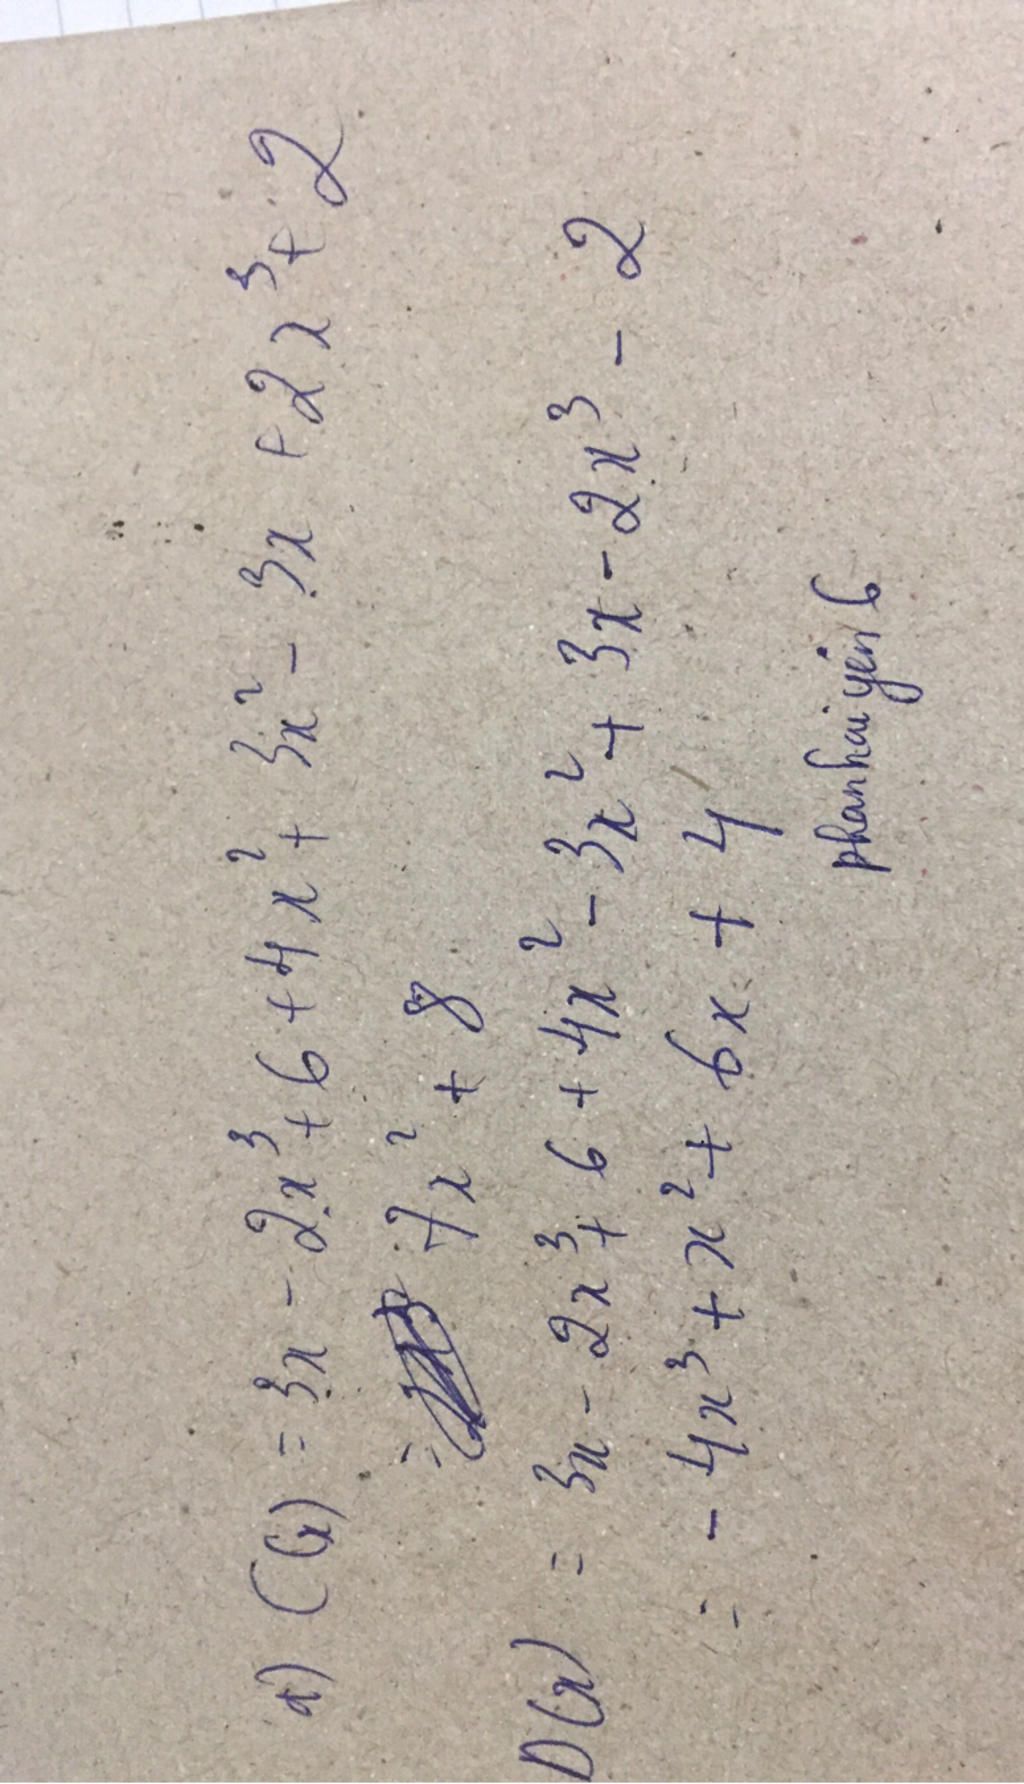 a) C(x) = 3x - 2x³ + 6 + 4x² + 3x² - 3x + 2x³ + 2
= 7x² + 8
D(x) = 3x - 2x³ + 6 + 4x² - 3x² + 3x - 2x³ - 2
= - 4x³ + x² + 6x + 4
phanhaiyến6